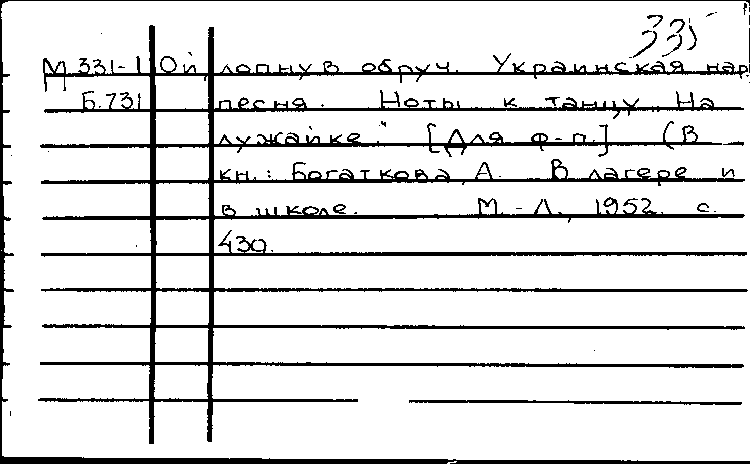 335
М 331-1 Ой, лопнув обруч. Украинская нар.
П Б.731 песня. Ноты к танцу „На
лужайке." [Для ф-п.] (В
кн.: Богаткова, А. В лагере и
в школе. М.-Л., 1952. с.
430.